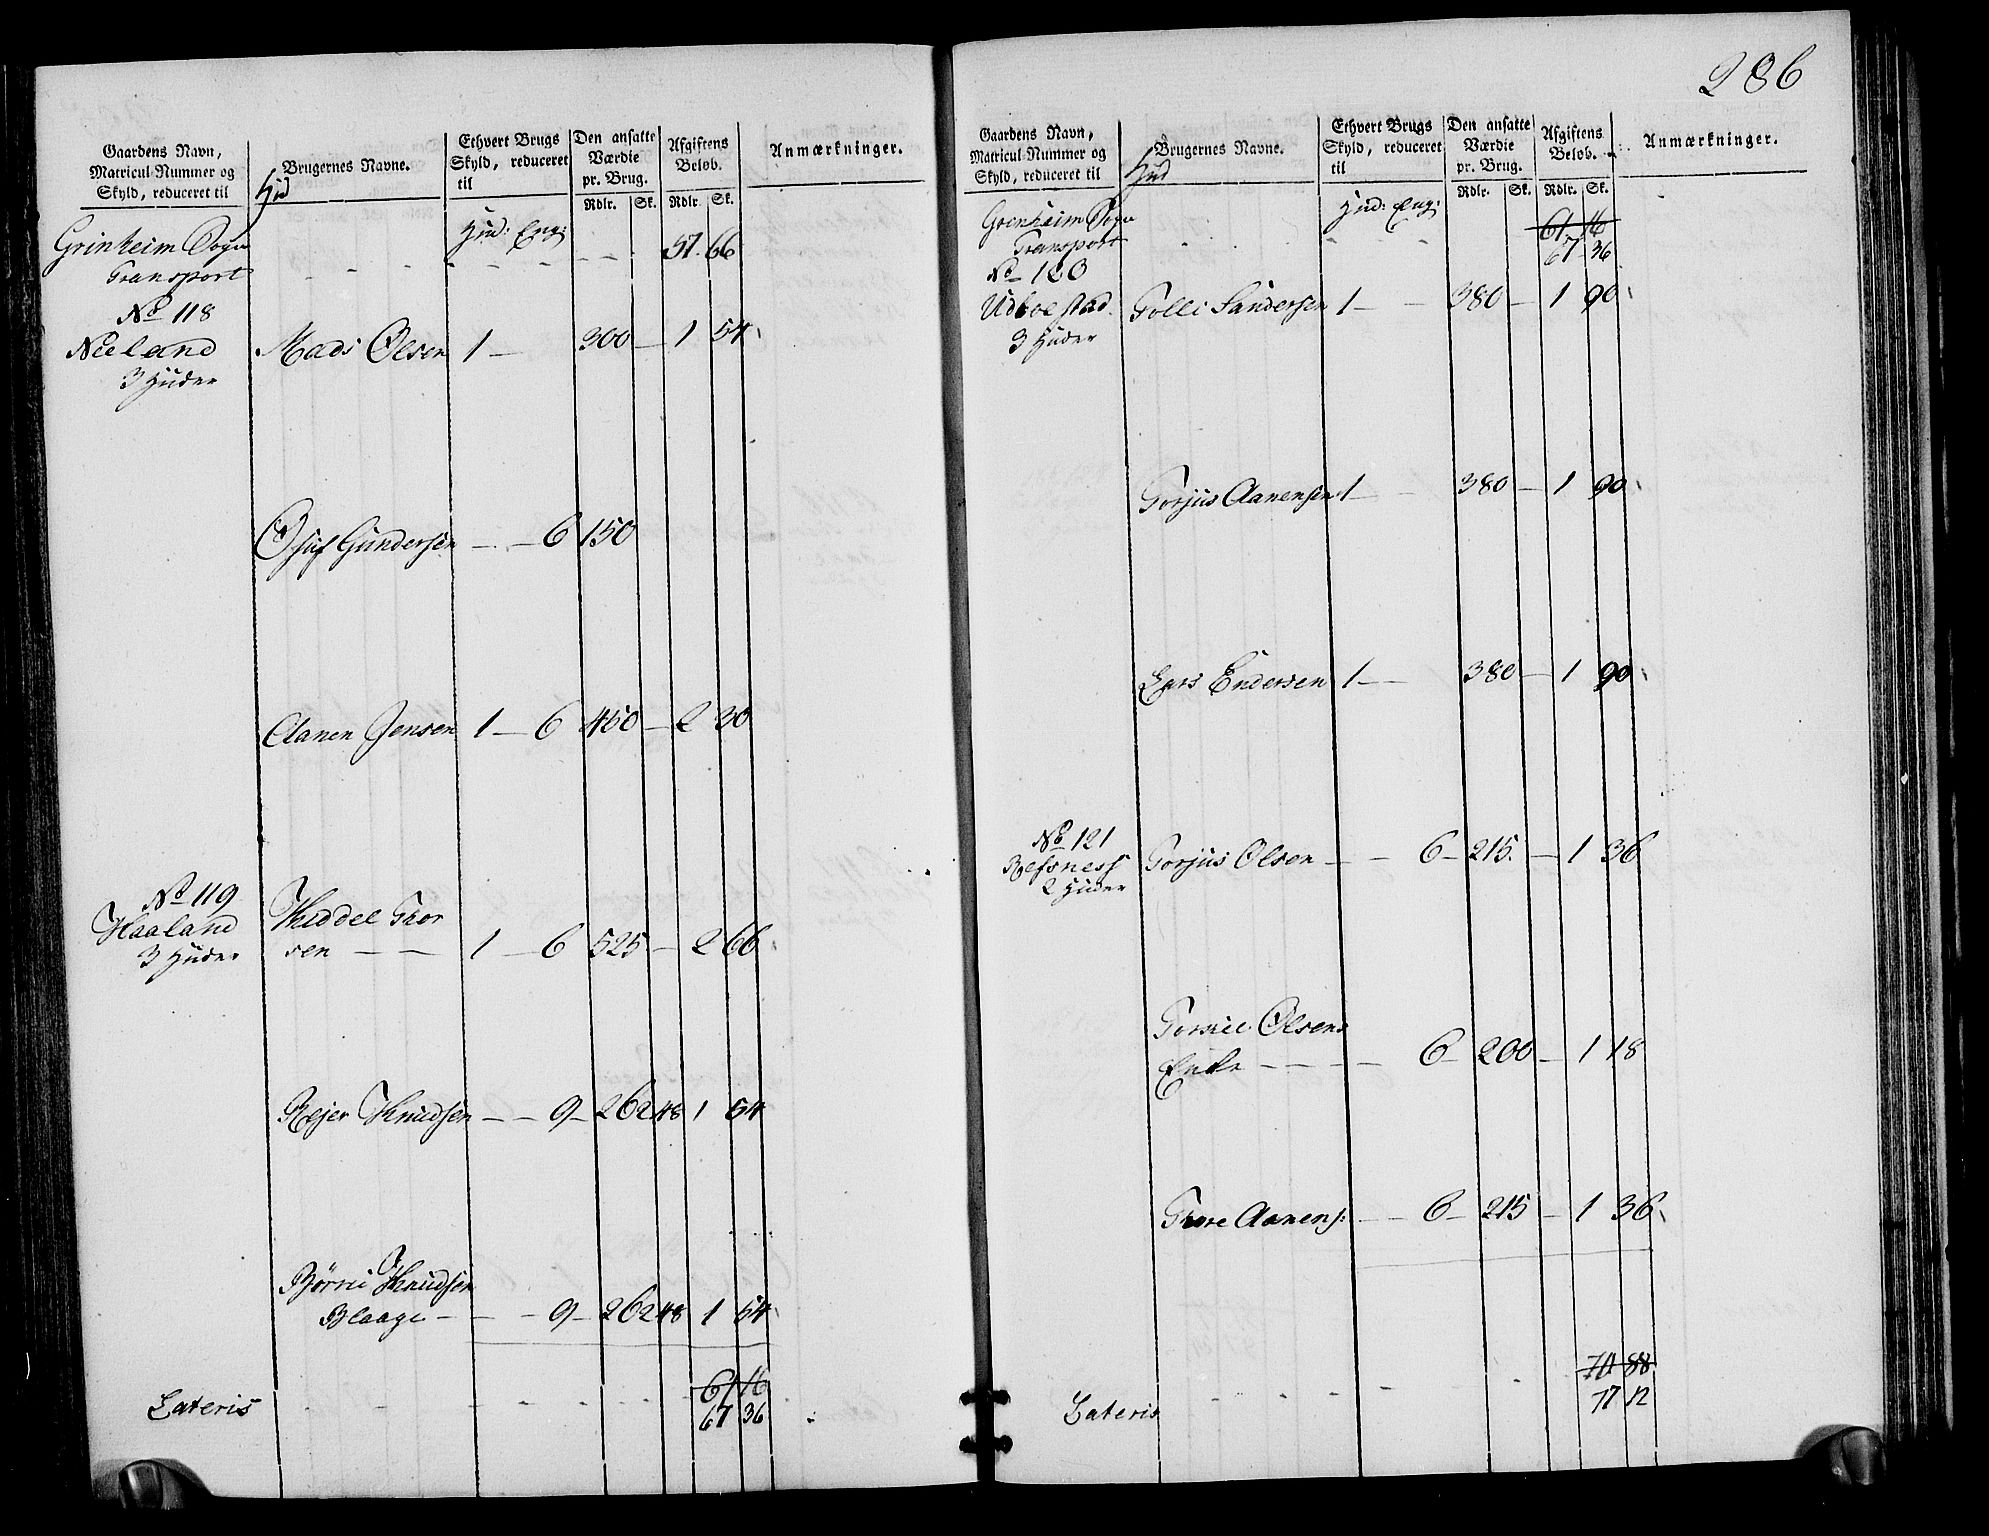 286
Gaardens Navn, Matricul-Nummer og Skyld, reduceret til Hud
Brugernes Navne.
Ethvert Brugs Skyld, reduceret til
Den ansatte Værdie pr. Brug.
Afgiftens Beløb.
Anmærkninger.
Rdlr. Sk. Rdlr. Sk.
Hud: Eng:
Grinheim Sogn
Transport - - - - - - - 57. 66
No 118
Neeland Mads Olsen 1 — 300 — 1 54
3 Huder
Osuf Gundersen — — 6 150
Aanen Jensen 1 — 6 450 — 2 30
No 119
Haaland Kiddel Thor
3 Huder sen — — 1 — 6 525 — 2 66
Rejer Knudsen — — 9 — 262 48 1 54
Børrii Knudsen
Blaage — — — 9 — 262 48 1 54
61 16
Lateris - - - - - - - 67 36
Gaardens Navn, Matricul-Nummer og Skyld, reduceret til Hud
Brugernes Navne.
Ethvert Brugs Skyld, reduceret til
Den ansatte Værdie pr. Brug.
Afgiftens Beløb.
Anmærkninger.
Rdlr. Sk. Rdlr. Sk.
Hud: Eng:
Grenheim Sogn 61 16
Transport - - - - 67 36
No 120
Udboestad Tolli Sandersen 1 — — 380 — 1 90
3 Huder
Torjus Aanensen 1 — — 380 — 1 90
Lars Endersen 1 — — 380 — 1 90
No 121
Refsness Torjus Olsen — — 6 — 215. — 1 36
2 Huder
Olsens
Enke — — — — 6 — 200 — 1 18
Thore Aanens: — — 6 — 215 — 1 36
88
Lateris - - - - - - 77 12